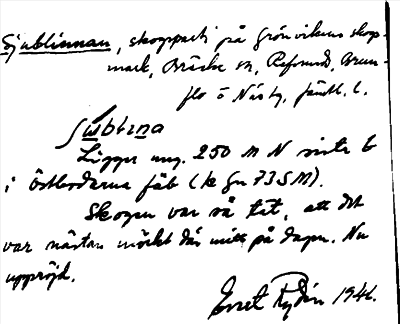 Sjublinnan, skogsparti på Grönvikens skog-
mark, Bräcke sn, Refsund, Brun-
flo o Näs tg, Jämtl. l.
Sjubbtna
Ligger ung. 250 m N sista b
i Östbodarna fäb (le gn 73 SM).
Skogen var så tät, att det
var nästan mörkt där mitt på dagen. Nu
uppröjd.
Ernst Rydén 1942.